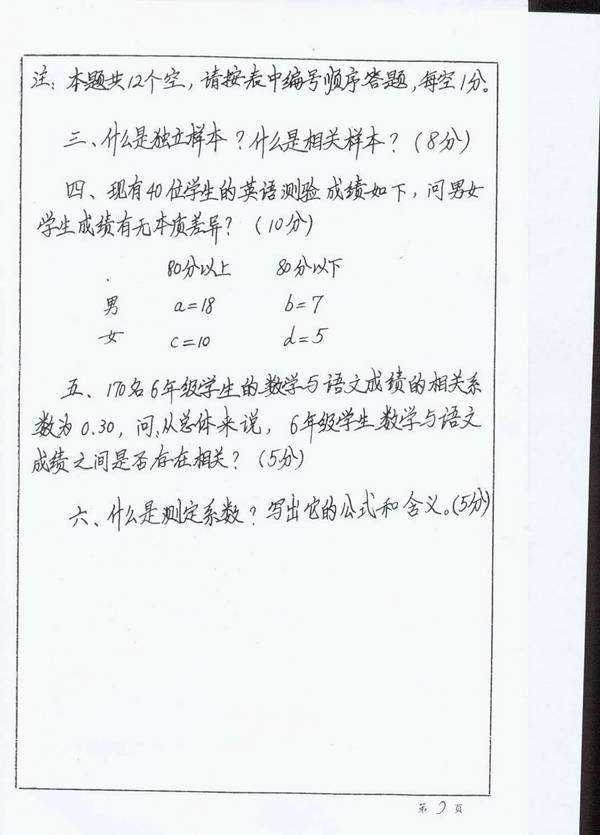 注：本题共12个空，请按表中编号顺序答题，每空1分。
三、什么是独立样本？什么是相关样本？（8分）
四、现有40位学生的英语测验成绩如下，问男女
学生成绩有无本质差异？（10分）
80分以上 80分以下
男 a=18 b=7
女 c=10 d=5
五、170名6年级学生的数学与语文成绩的相关系
数为0.30，问，从总体来说，6年级学生数学与语文
成绩之间是否存在相关？（5分）
六、什么是测定系数？写出它的公式和含义。（5分）
第 页